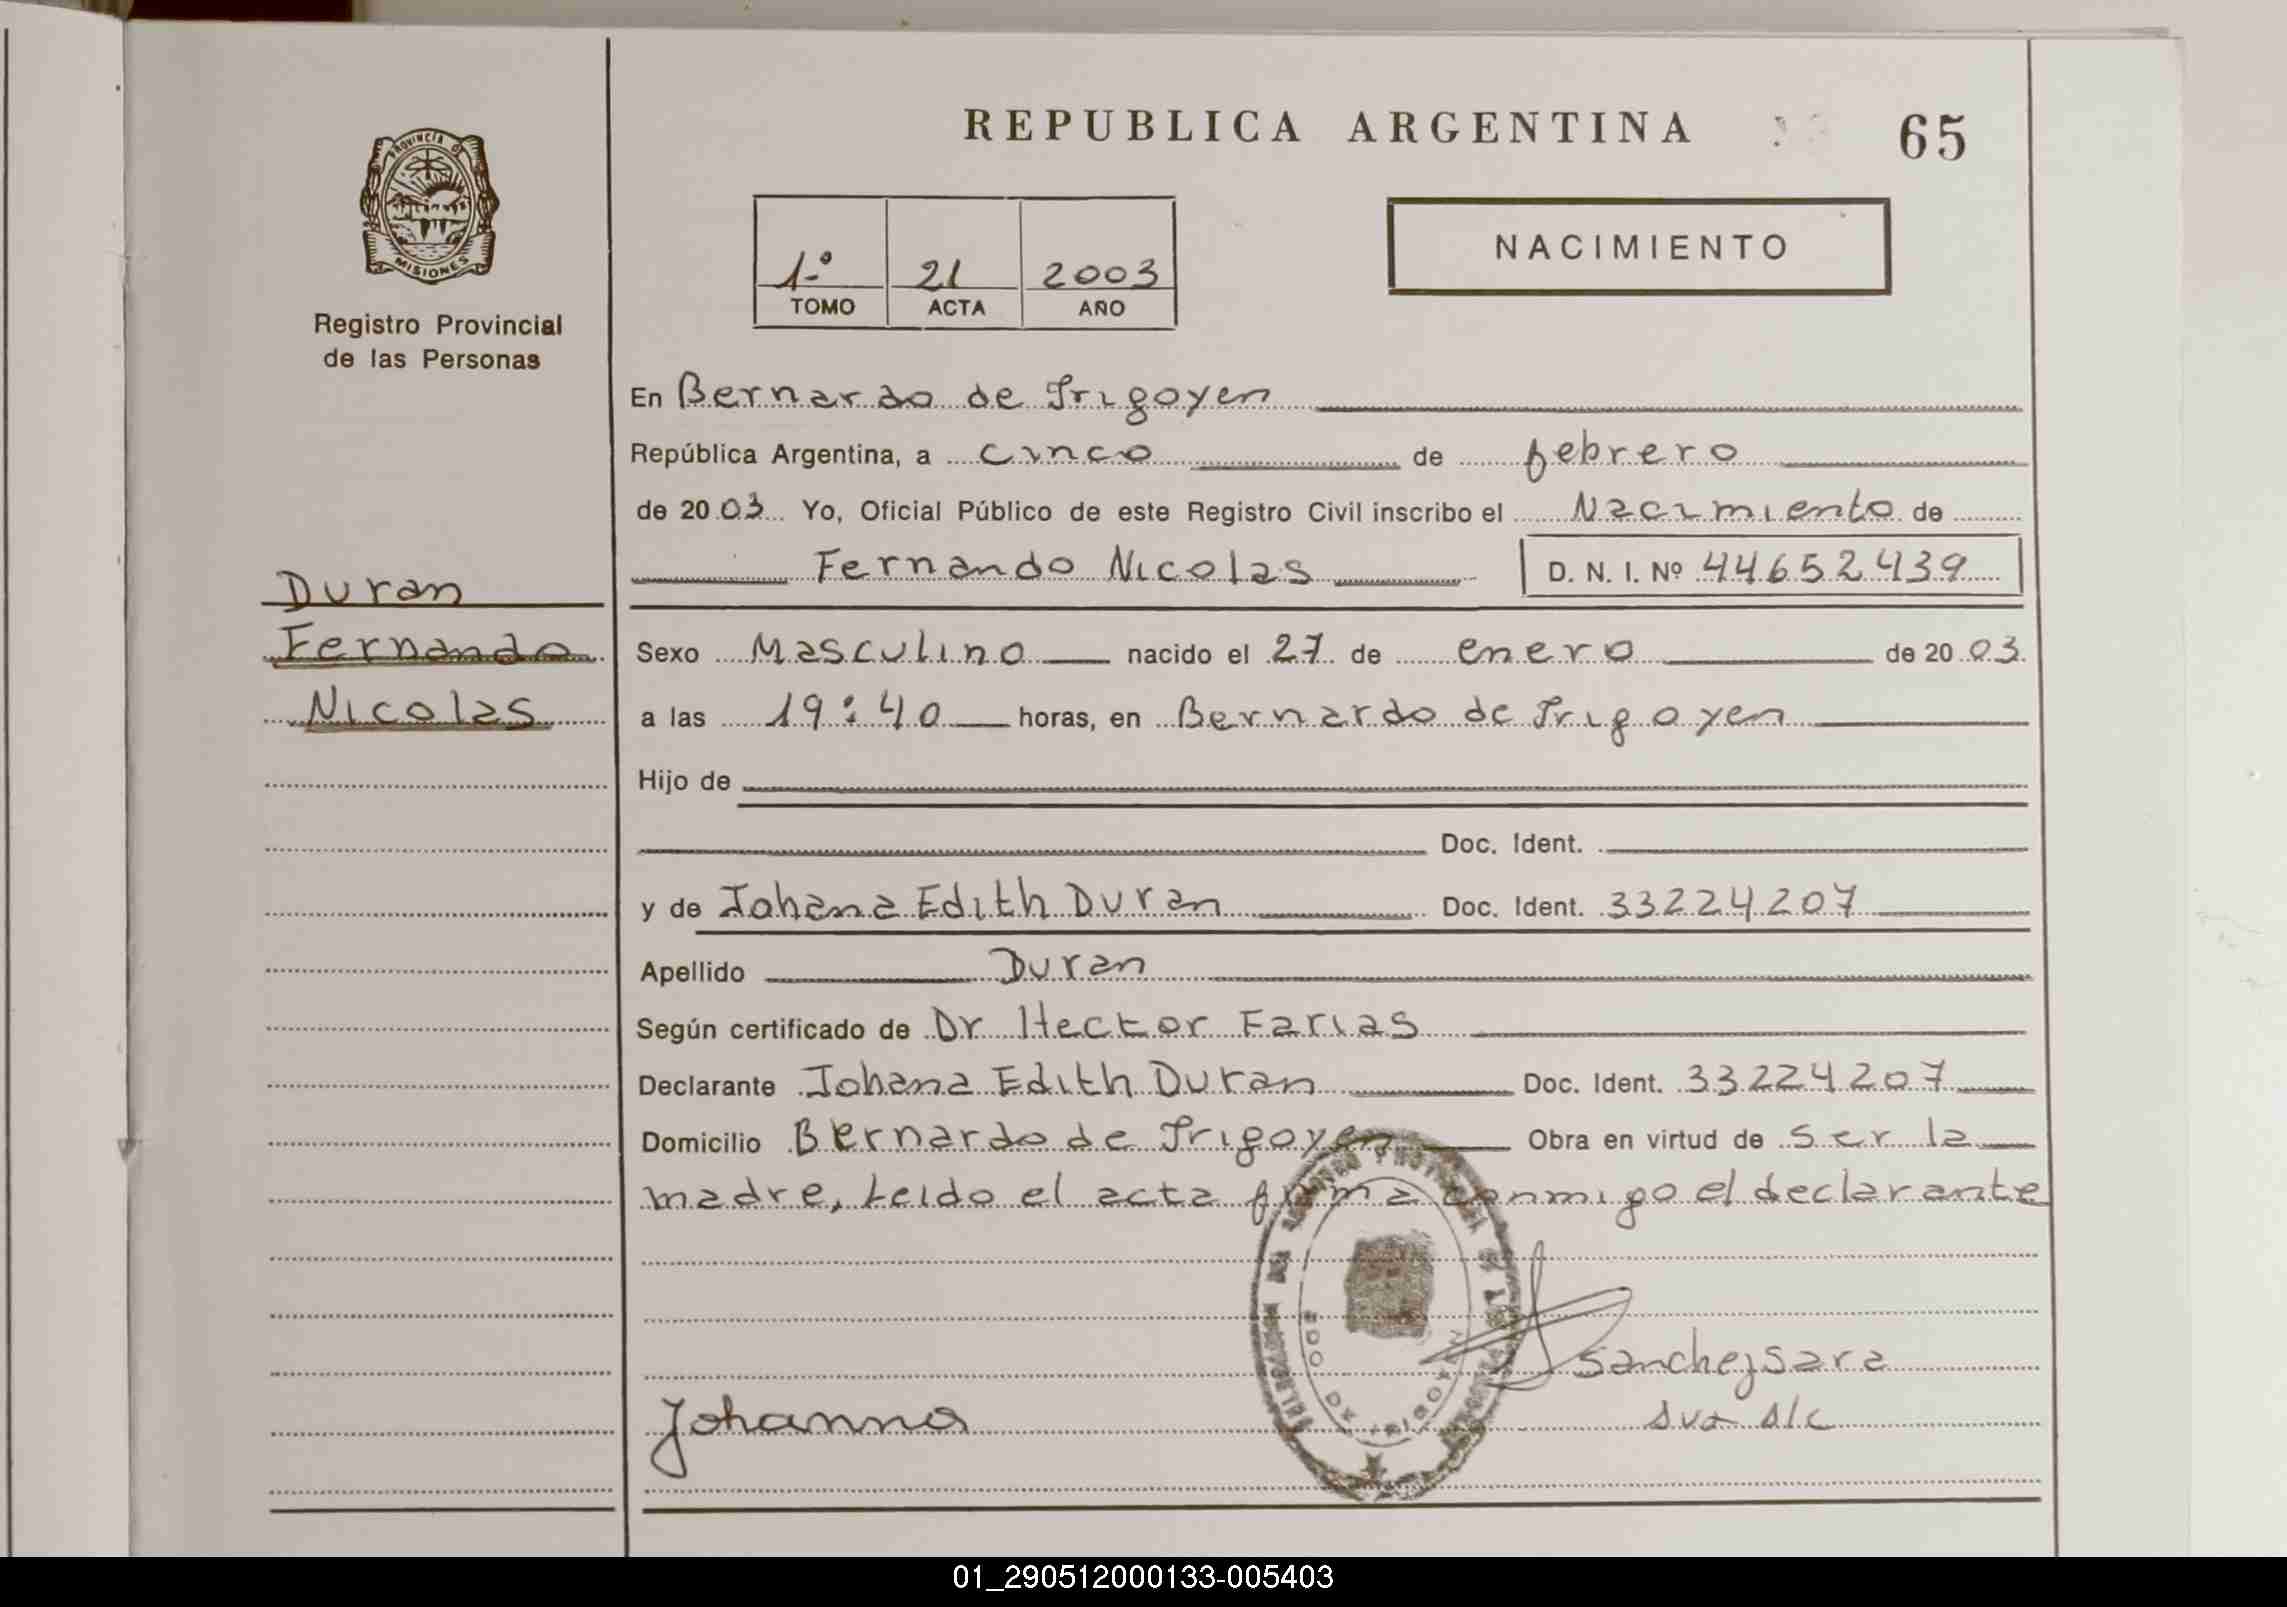 REPUBLICA ARGENTINA
65
PROVINCIA DE
MISIONES
Registro Provincial
de las Personas
1º 21 2003
TOMO ACTA AÑO
NACIMIENTO
En Bernardo de Irigoyen
República Argentina, a cinco de febrero
de 2003 Yo, Oficial Público de este Registro Civil inscribo el Nacimiento de
Fernando Nicolas D. N. I. Nº 44652439
Duran
Fernando
Nicolas
Sexo Masculino nacido el 27 de enero de 2003
a las 19:40 horas, en Bernardo de Irigoyen
Hijo de
Doc. Ident.
y de Johana Edith Duran Doc. Ident. 33224207
Apellido Duran
Según certificado de Dr Hector Farias
Declarante Johana Edith Duran Doc. Ident. 33224207
Domicilio Bernardo de Irigoyen Obra en virtud de ser la
madre, leido el acta firma conmigo el declarante
BDO DE IRIGOYEN
Sanchez Sara
Johanna
01_290512000133-005403